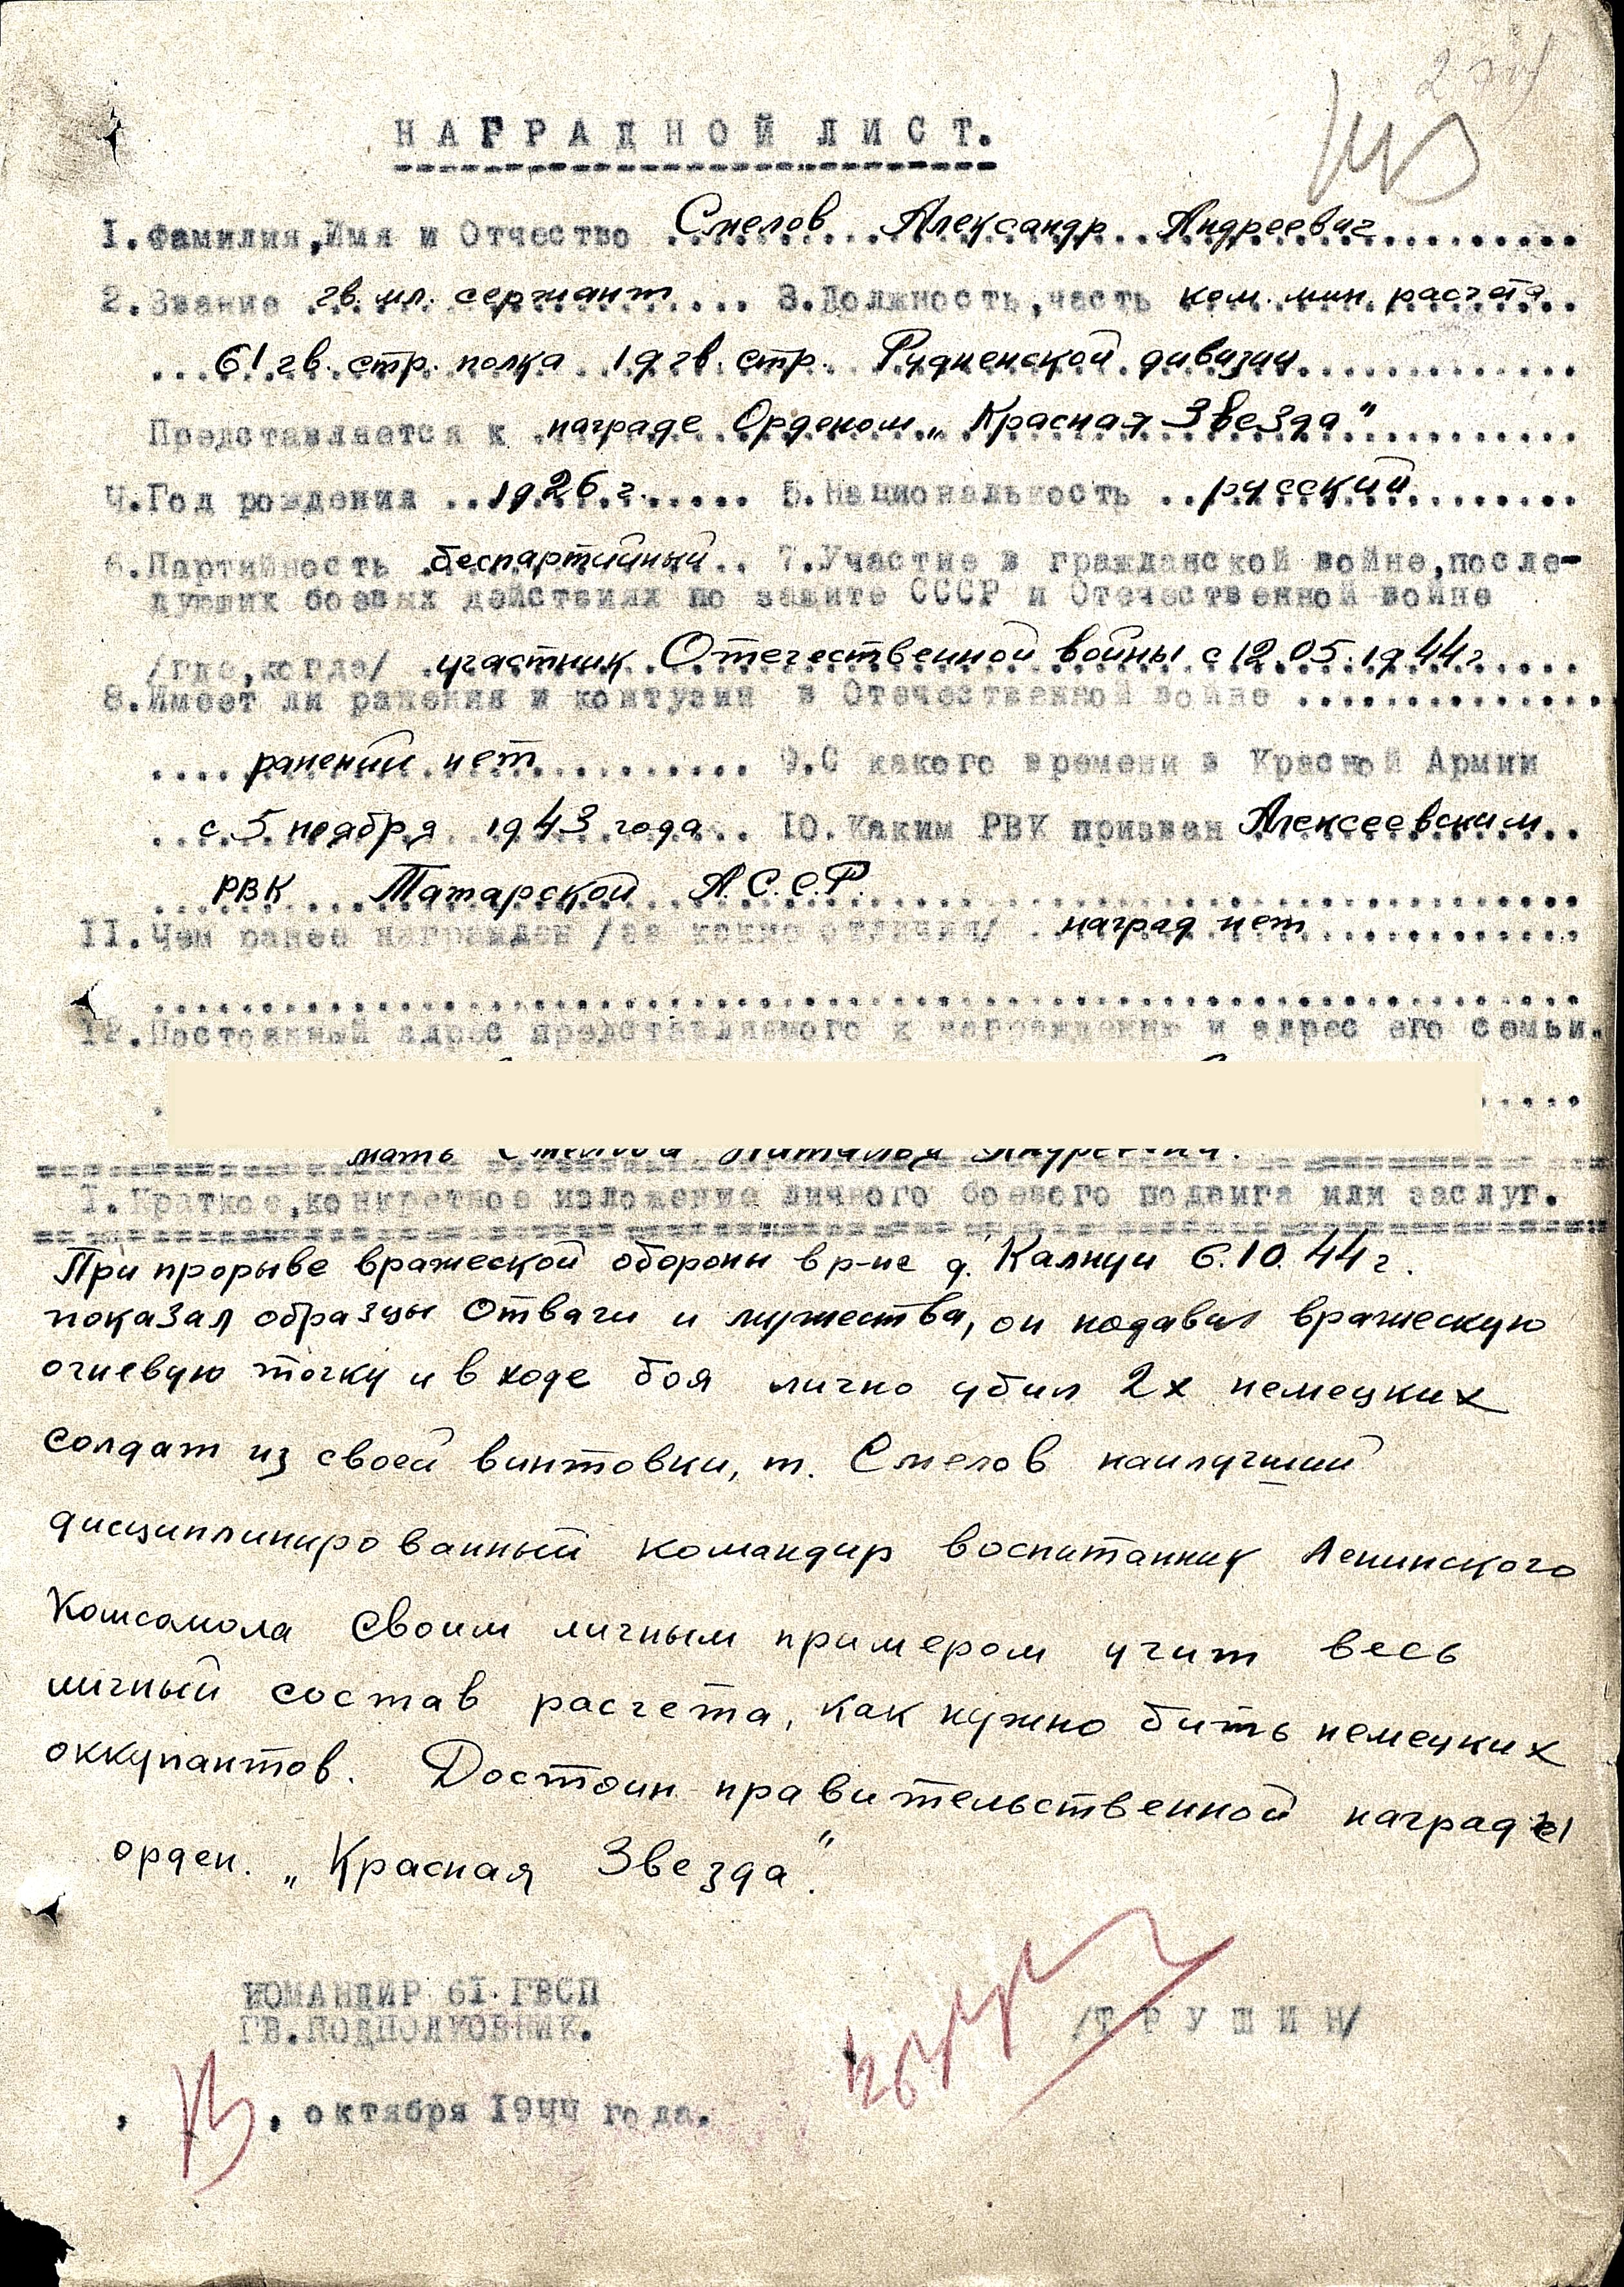 НАГРАДНОЙ ЛИСТ.
1. Фамилия, Имя и Отчество Смелов Александр Андреевич
2. Звание гв. мл. сержант 3. Должность, часть ком. мин. расчета
61 гв. стр. полка 19 гв. стр. Рудненской дивизии
Представляется к награде Орденом „Красная Звезда"
4. Год рождения 1926 г. 5. Национальность русский
6. Партийность беспартийный 7. Участие в гражданской войне, после-
дующих боевых действиях по защите СССР и Отечественной войне
/где, когда/ участник Отечественной войны с 12.05.1944 г
8. Имеет ли ранения и контузии в Отечественной войне
ранений нет 9. С какого времени в Красной Армии
с 5 ноября 1943 года 10. Каким РВК призван Алексеевским
РВК Татарской А.С.С.Р.
11. Чем ранее награжден /за какие отличия/ наград нет
12. Постоянный адрес представляемого к награждению и адрес его семьи.
мать
I. Краткое, конкретное изложение личного боевого подвига или заслуг.
При прорыве вражеской обороны в р-не д. Калнуи 6.10.44 г.
показал образцы отваги и мужества, он подавил вражескую
огневую точку и в ходе боя лично убил 2х немецких
солдат из своей винтовки, т. Смелов наилучший
дисциплинированный командир воспитанник Ленинского
Комсомола своим личным примером учит весь
личный состав расчета, как нужно бить немецких
оккупантов. Достоин правительственной награды
орден. „Красная Звезда".
КОМАНДИР 61 ГВСП
ГВ. ПОДПОЛКОВНИК.
/ТРУШИН/
октября 1944 года.